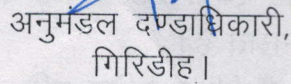 अनुमंडल दण्डाधिकारी,
गिरिडीह।